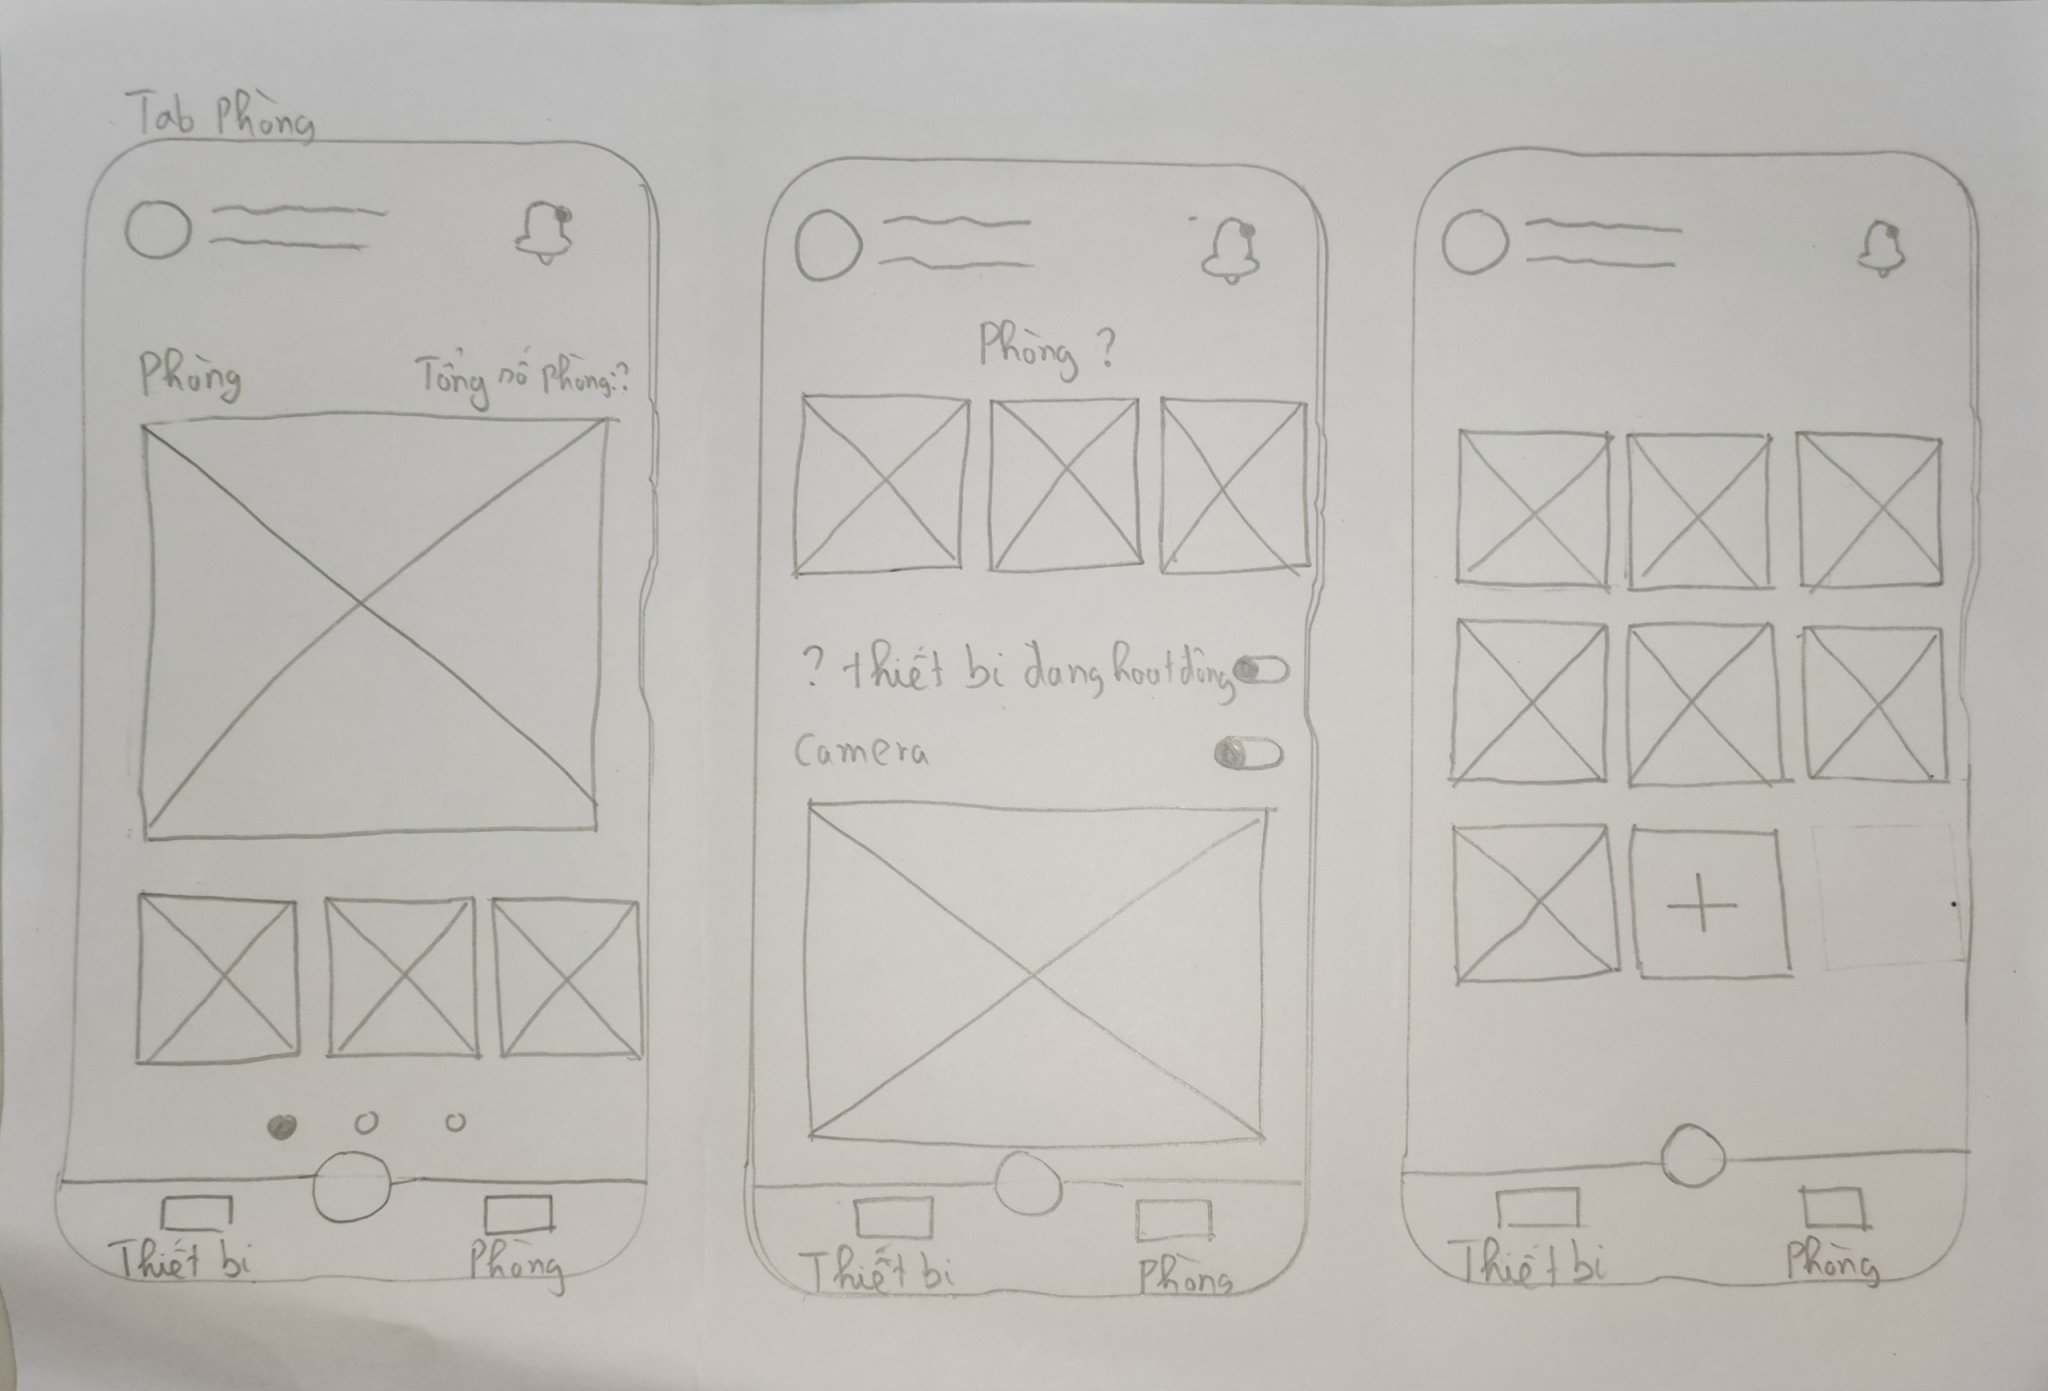 Tab Phòng
Phòng
Tổng số phòng:?
Thiết bi
Phòng
Phòng ?
? thiết bi đang hoạt động
Camera
Thiết bi
Phòng
Thiết bi
Phòng